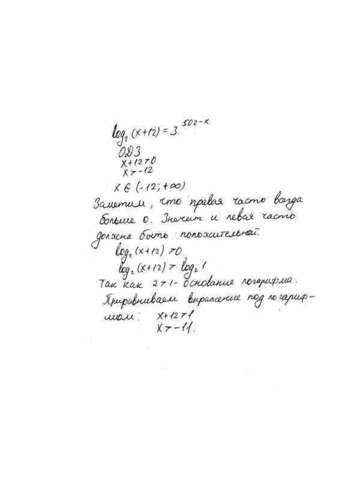 log₂ (x+12) = 3^502-x
ОДЗ
x+12>0
x>-12
x ∈ (-12; +∞)
Заметим, что правая часть всегда
больше 0. Значит и левая часть
должна быть положительной.
log₂ (x+12) >0
log₂ (x+12) > log₂ 1
Так как 2>1- основание логарифма.
Приравниваем выражение под логариф-
мом: x+12>1
x>-11.